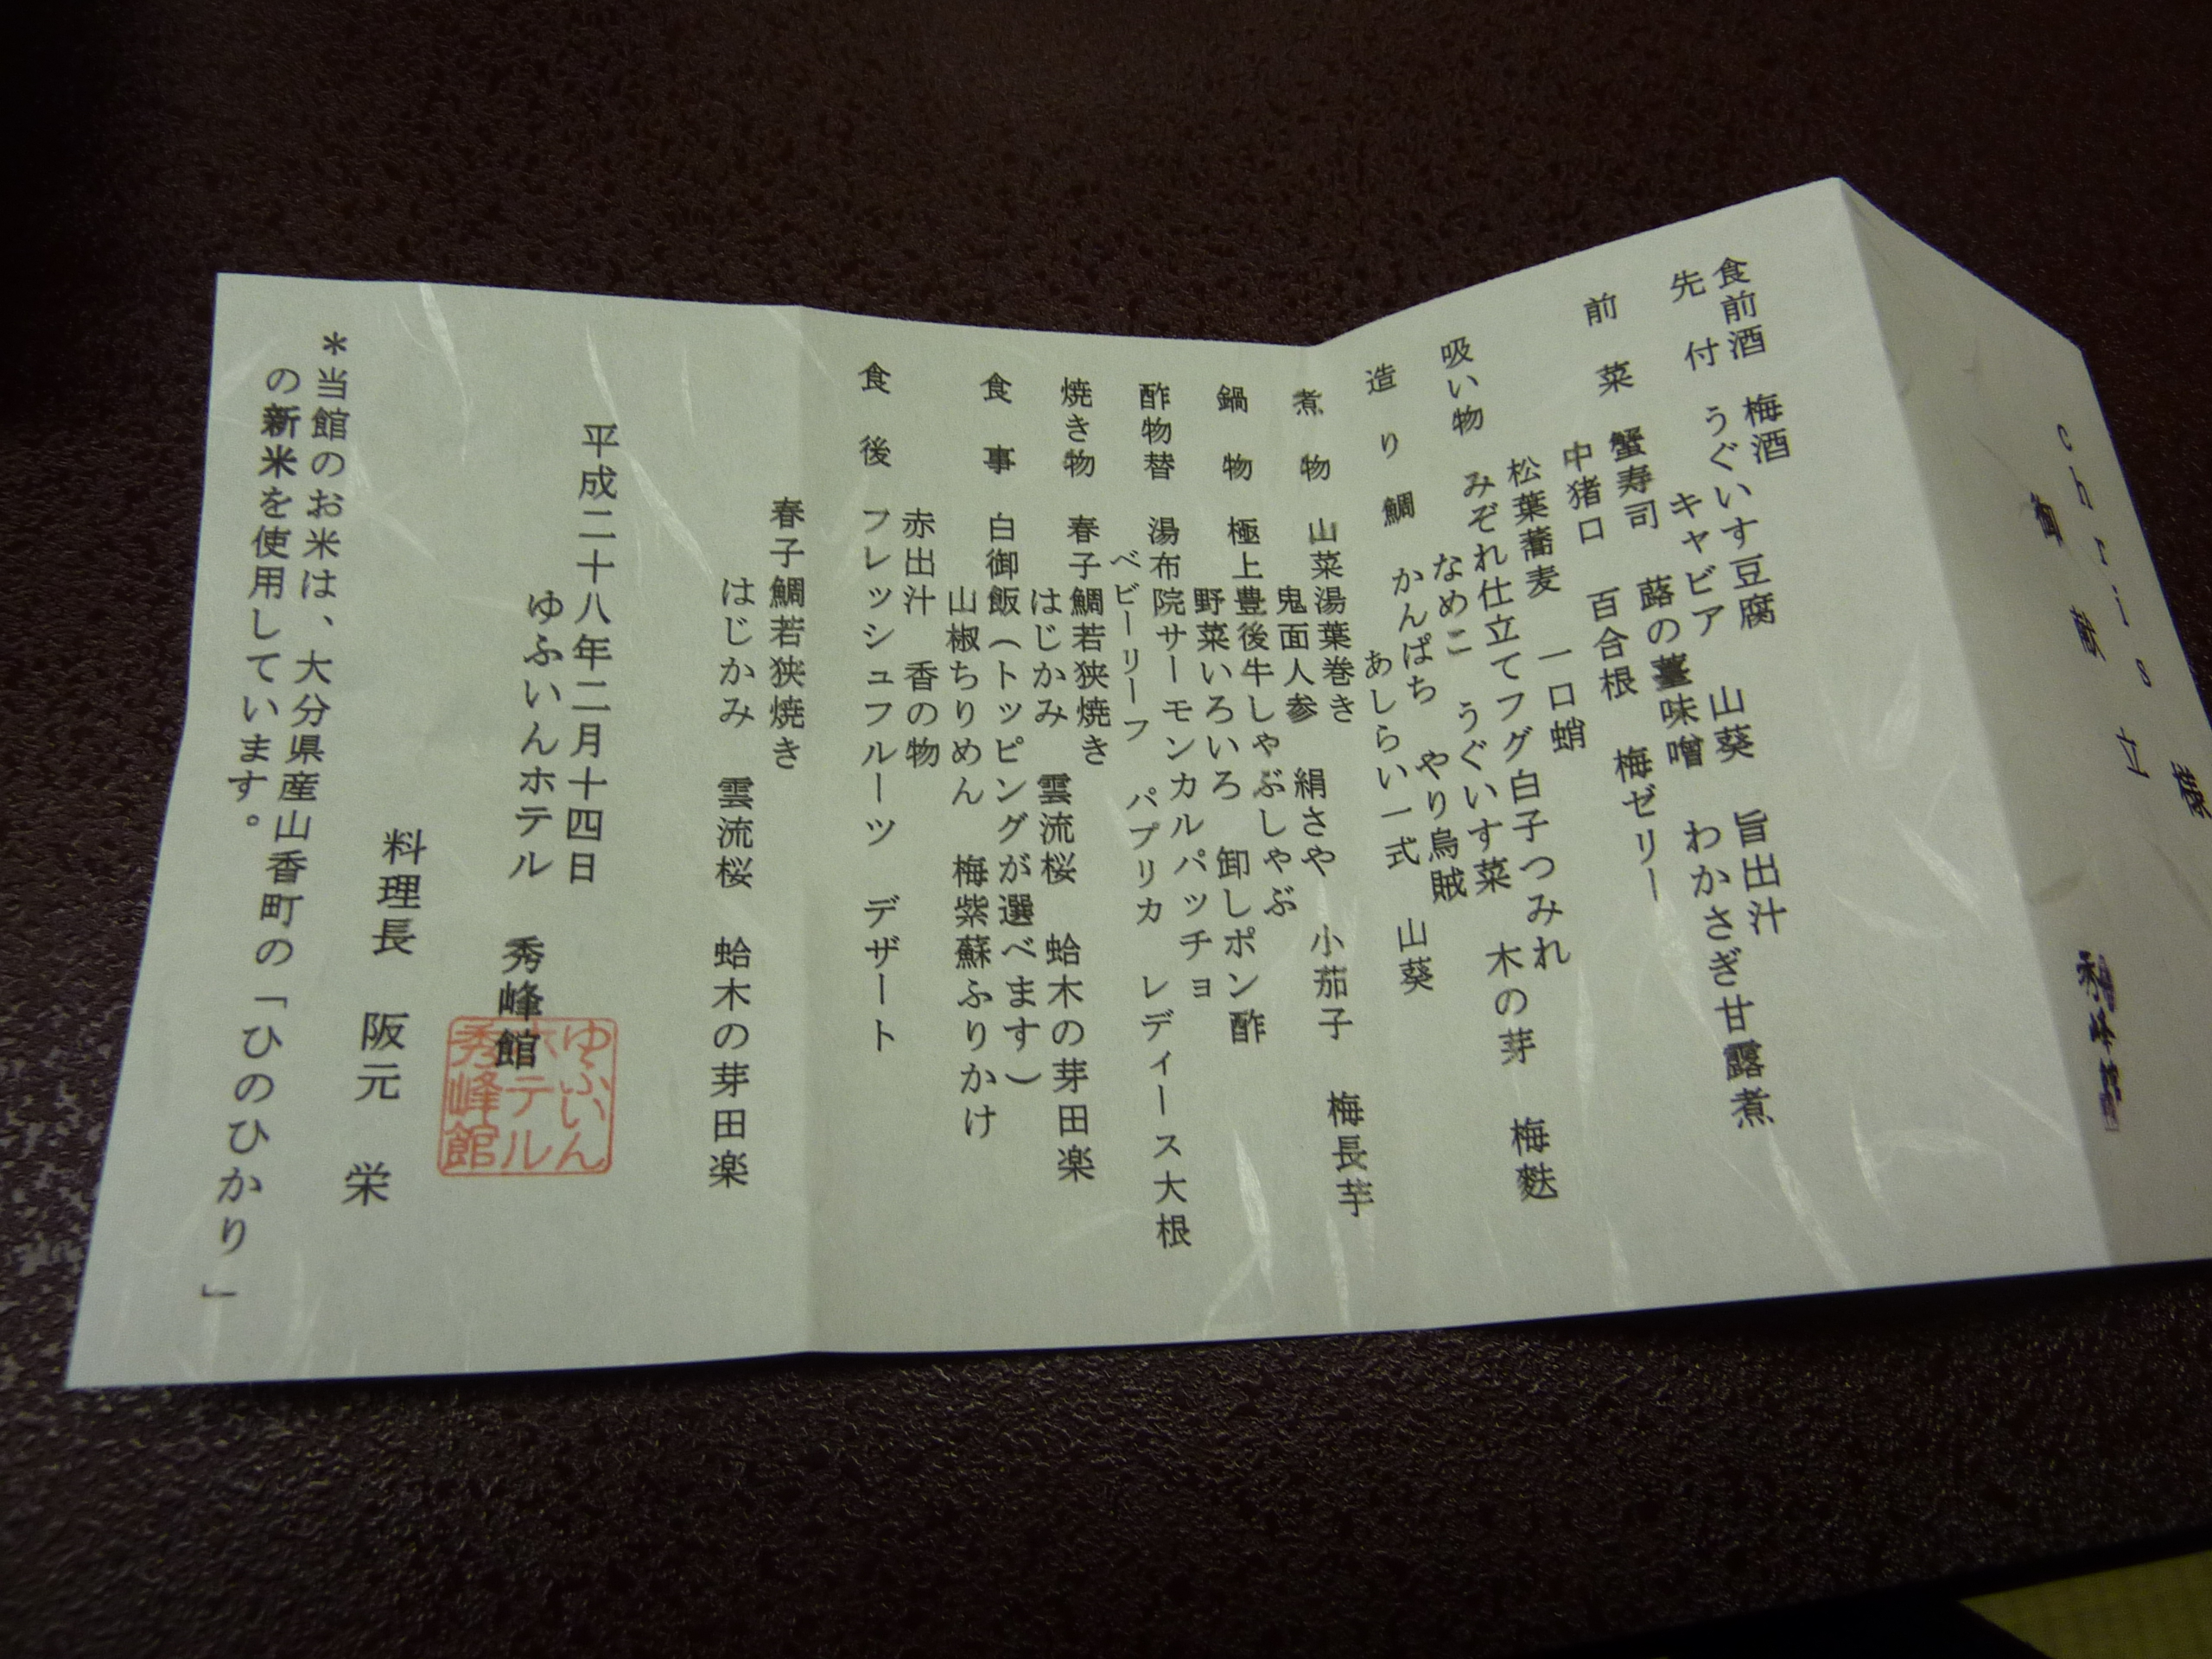 chris 様
御献立
秀峰館
食前酒 梅酒
先付 うぐいす豆腐 山葵 旨出汁
キャビア わかさぎ甘露煮
前菜 蟹寿司 蕗の薹味噌
中猪口 百合根 梅ゼリー
松葉蕎麦 一口蛸
吸い物 みぞれ仕立てフグ白子つみれ
なめこ うぐいす菜 木の芽 梅麩
造り 鯛 かんぱち やり烏賊
あしらい一式 山葵
煮物 山菜湯葉巻き
鬼面人参 絹さや 小茄子 梅長芋
鍋物 極上豊後牛しゃぶしゃぶ
野菜いろいろ 卸しポン酢
酢物替 湯布院サーモンカルパッチョ
ベビーリーフ パプリカ レディース大根
焼き物 春子鯛若狭焼き
はじかみ 雲流桜 蛤木の芽田楽
食事 白御飯(トッピングが選べます)
山椒ちりめん 梅紫蘇ふりかけ
赤出汁 香の物
食後 フレッシュフルーツ デザート
春子鯛若狭焼き
はじかみ 雲流桜 蛤木の芽田楽
平成二十八年二月十四日
ゆふいんホテル 秀峰館
ゆふいん
ホテル
秀峰館
料理長 阪元 栄
*当館のお米は、大分県産山香町の「ひのひかり」
の新米を使用しています。